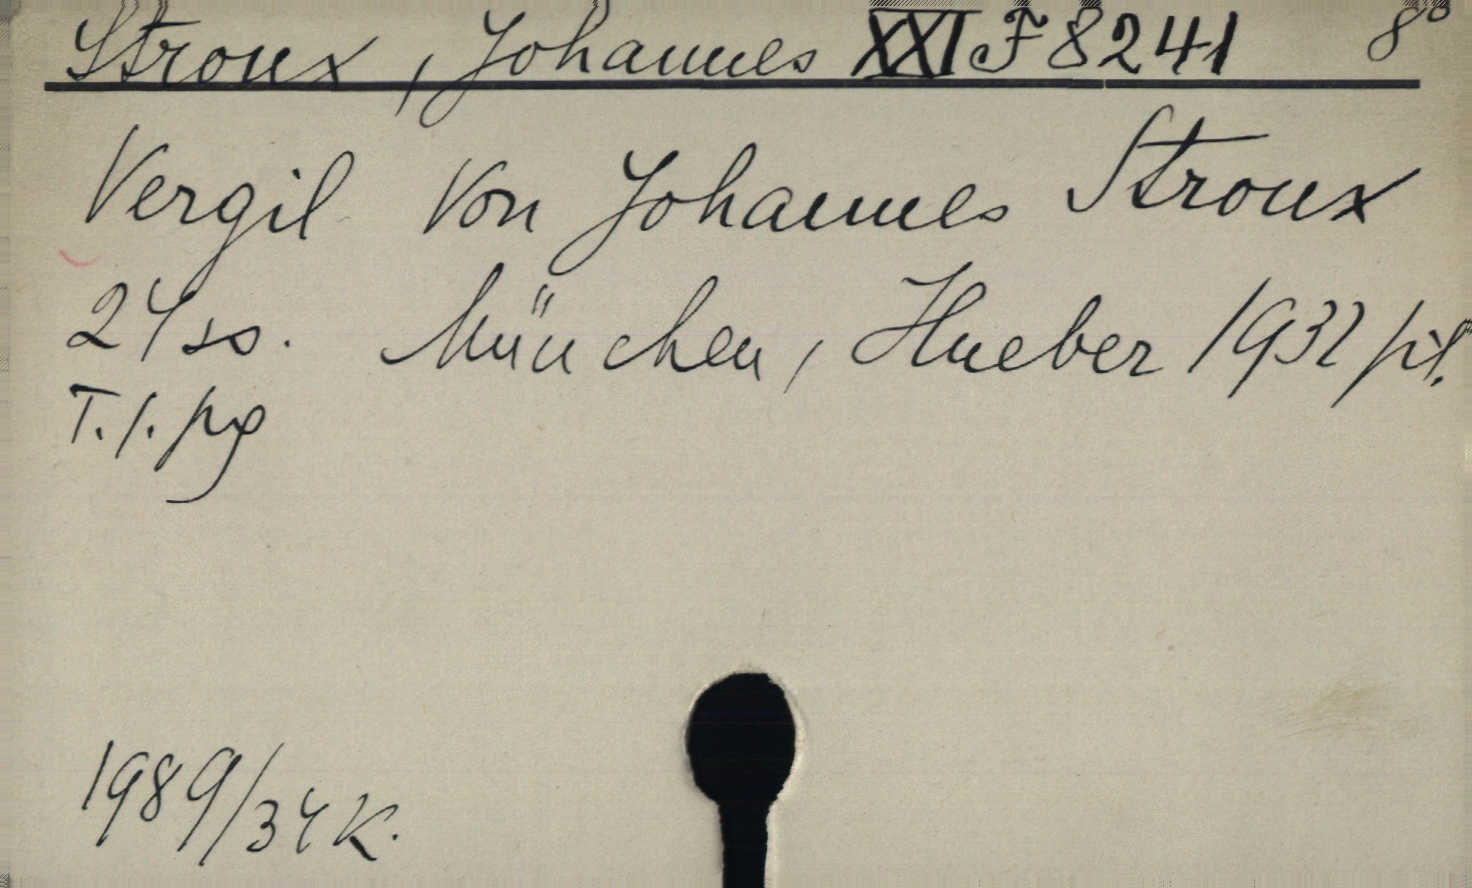 Stroux, Johannes XXI F 8241 8°
Vergil Von Johannes Stroux
24 ss. München, Hueber 1932 pil.
T. 1. pg
1989/34 K.